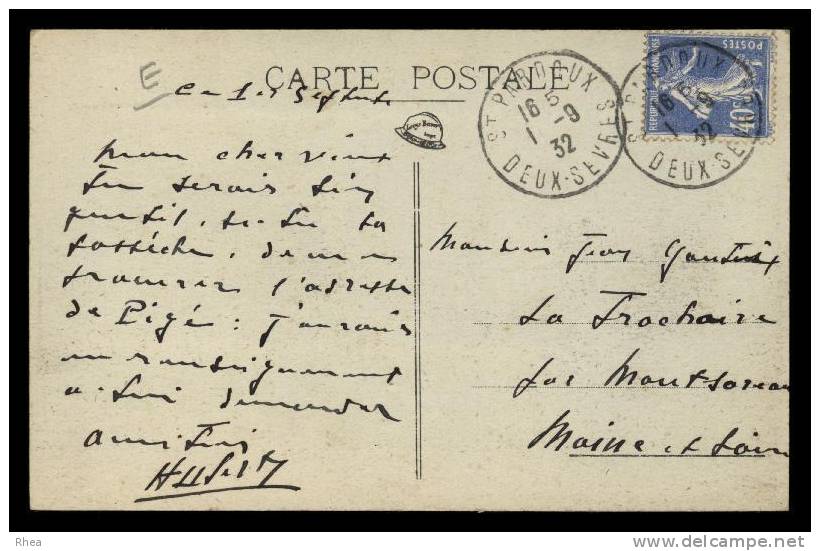 E
CARTE POSTALE
ce 1er Septembre
mon cher vieux
Tu serais bien
gentil, si tu
de me
procurer l'adresse
de Pigé : j'aurais
un renseignement
a lui demander
amitiés
ST PARDOUX
16 5
1 -9
32
DEUX-SEVRES
ST PARDOUX
16 5
1 -9
32
DEUX-SEVRES
REPUBLIQUE FRANÇAISE
POSTES
40c
Monsieur Jean
La Trochoire
par Montsoreau
Maine et Loire
Rhea
delcampe.net